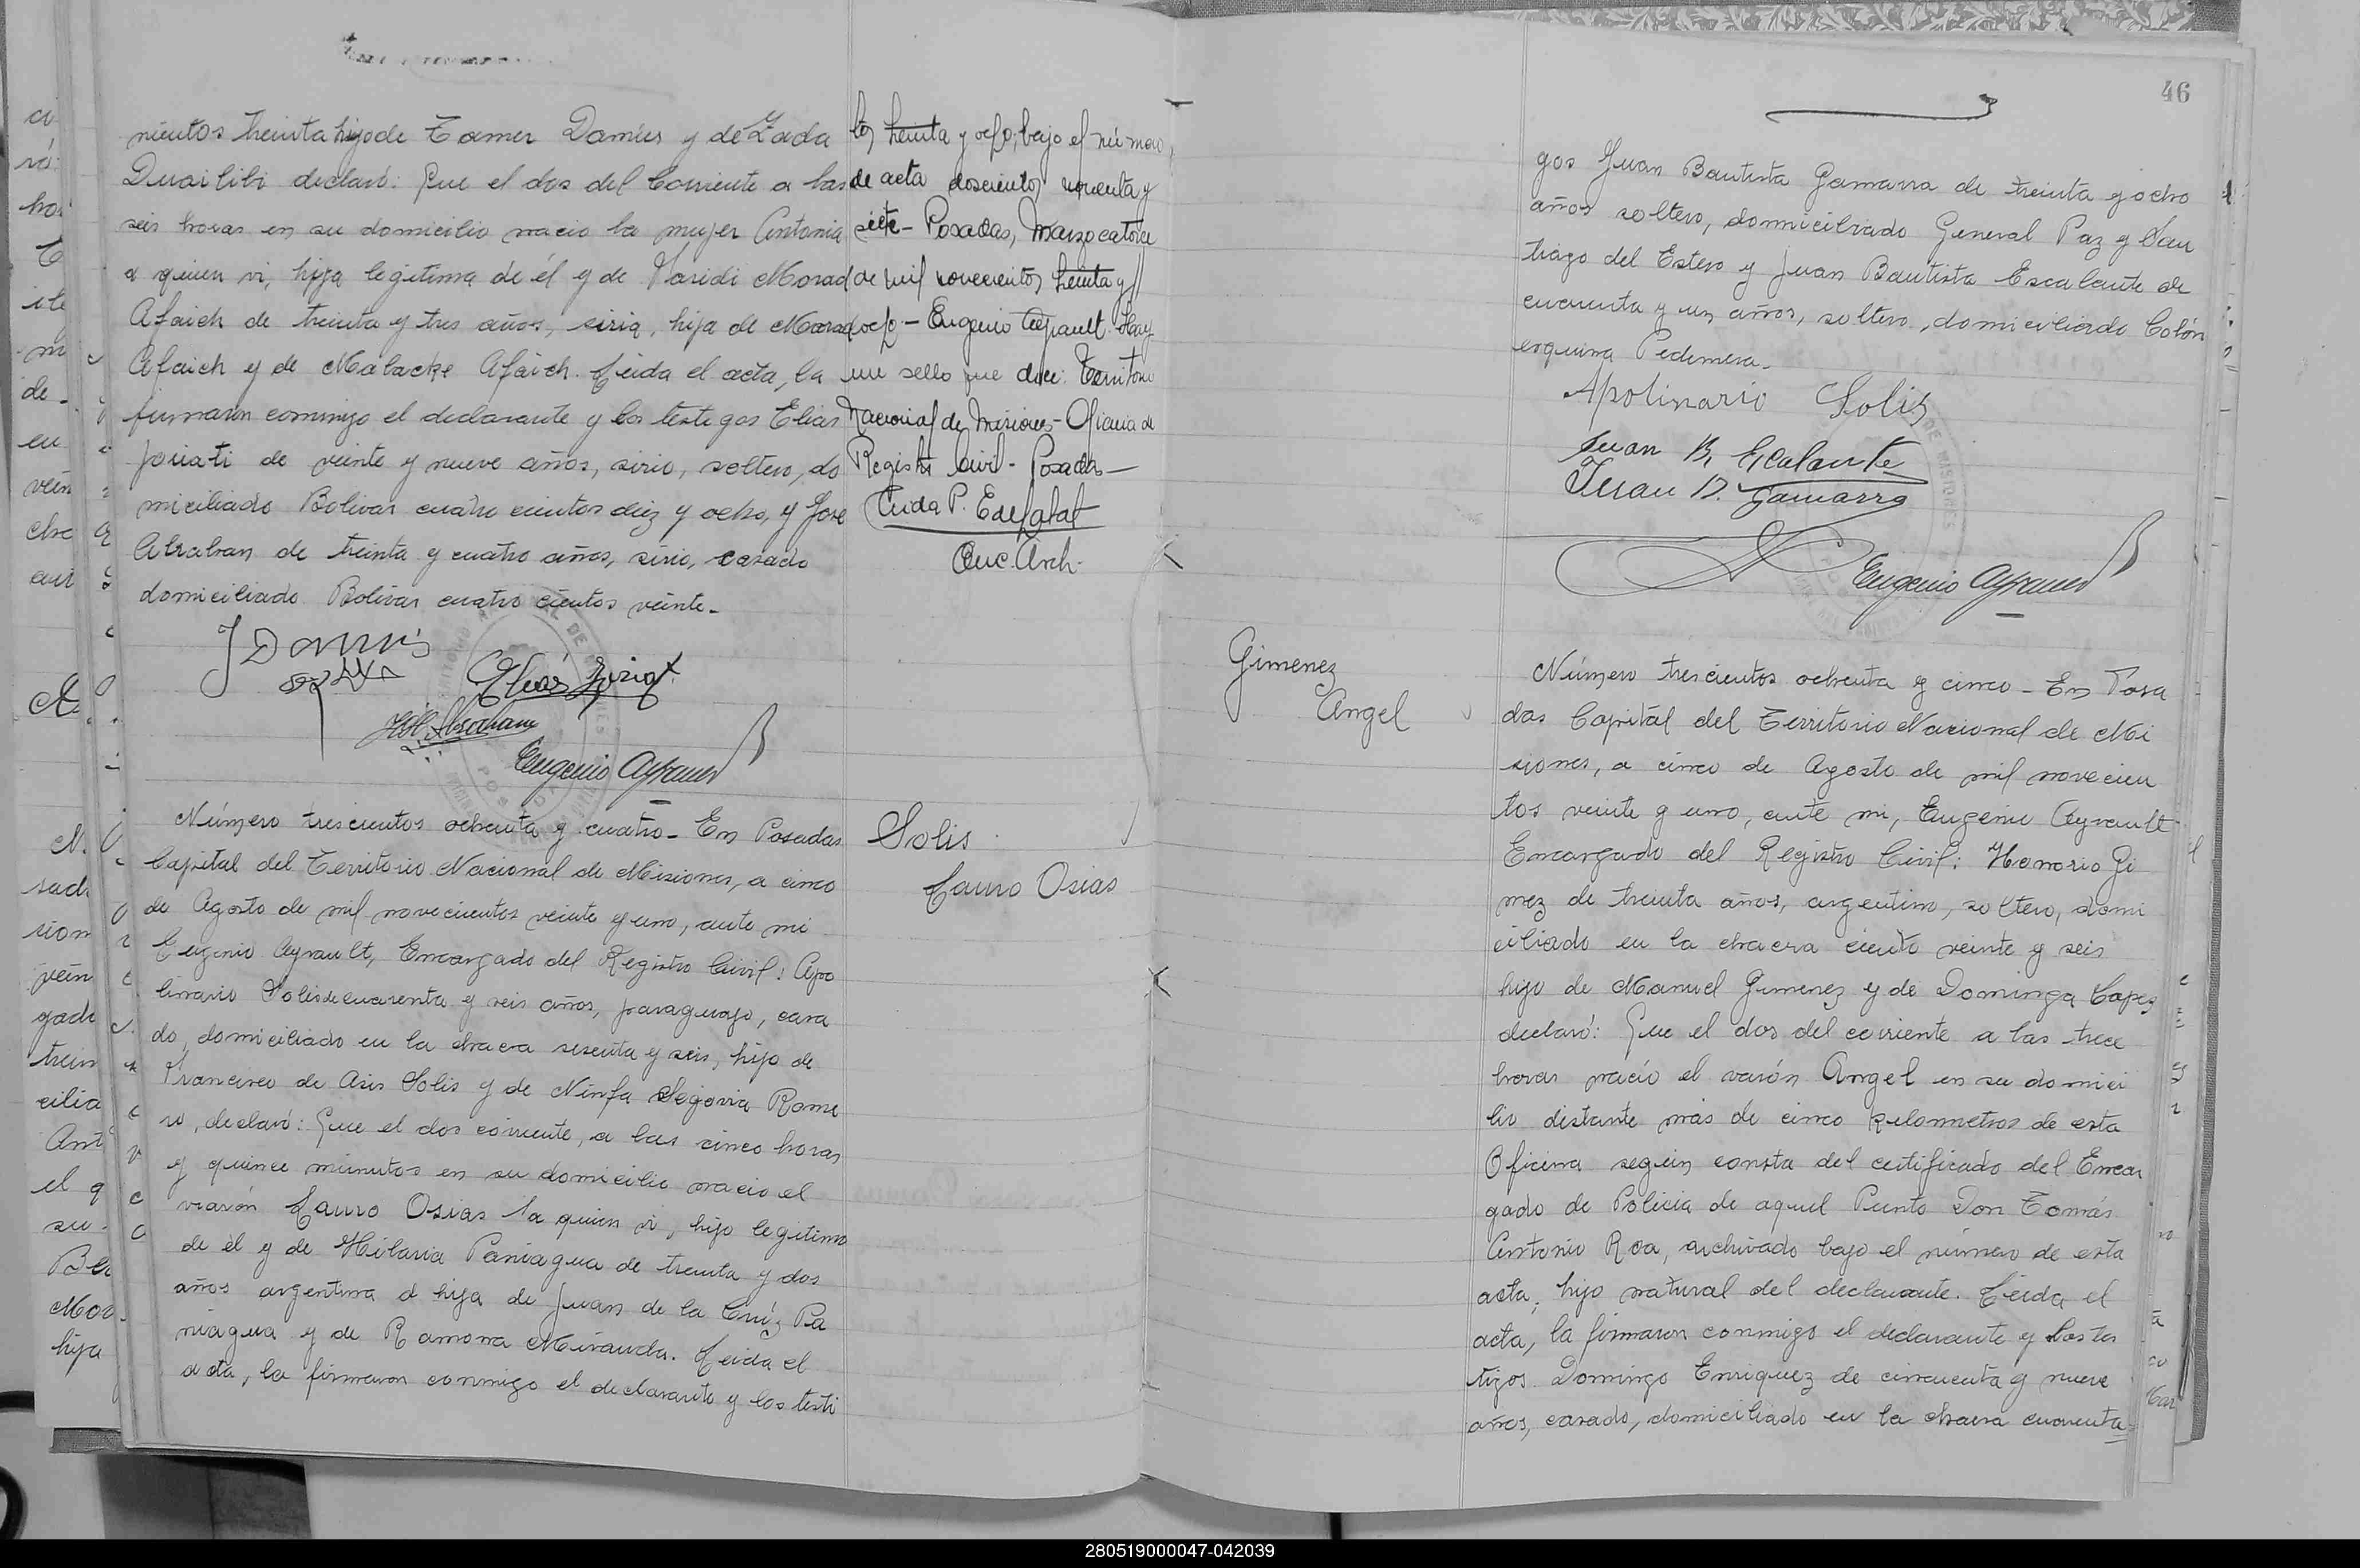 nientos treinta hijo de Tamer Damús y de Zada
Duailibi declaró: Que el dos del corriente a las
seis horas en su domicilio nacio la mujer Antonia
a quien vi, hija legitima de él y de Faridi Morad
Afaich de treinta y tres años, siria, hija de Morad
Afaich y de Malacke Afaich. Leida el acta, la
firmaron conmigo el declarante y los testegos Elias
Joriati de veinte y nueve años, sirio, soltero, do
miciliado Bolivar cuatro cientos diez y ocho, y Jose
Abraham de treinta y cuatro años, sirio, casado
domiciliado Bolivar cuatro cientos veinte.
J Damús
Elias
Abraham
Eugenio Ayrault
tos treinta y ocho, bajo el número
de acta doscientos noventa y
siete - Posadas, Marzo catorce
de mil novecientos treinta y
ocho - Eugenio Ayrault. Hay
un sello que dice: Territorio
Nacional de Misiones - Oficina de
Registro Civil - Posadas -
Enc. Arch.
Número trescientos ochenta y cuatro - En Posadas
Capital del Territorio Nacional de Misiones, a cinco
de Agosto de mil novecientos veinte y uno, ante mi
Eugenio Ayrault, Encargado del Registro Civil: Apo
linario Solis de cuarenta y seis años, paraguayo, casa
do, domiciliado en la chacra sesenta y seis, hijo de
Francisco de Asis Solis y de Ninfa Segovia Rome
ro, declaró: Que el dos corriente, a las cinco horas
y quince minutos en su domicilio nacio el
varón Lauro Osias a quien vi, hijo legitimo
de él y de Hilaria Paniagua de treinta y dos
años argentina hija de Juan de la Cruz Pa
niagua y de Ramona Miranda. Leida el
acta, la firmaron conmigo el declarante y los testi
Solis
Lauro Osias
46
gos Juan Bautista Gamarra de treinta y ocho
años soltero, domiciliado General Paz y San
tiago del Estero y Juan Bautista Escalante de
cuarenta y un años, soltero, domiciliado Colón
esquina Pedernera.
Apolinario Solis
Juan B. Escalante
Juan B. Gamarra
Eugenio Ayrault
Gimenez
Angel
Número trescientos ochenta y cinco - En Posa
das Capital del Territorio Nacional de Mi
siones, a cinco de Agosto de mil novecien
tos veinte y uno, ante mi, Eugenio Ayrault
Encargado del Registro Civil: Honorio Gi
mez de treinta años, argentino, soltero, domi
ciliado en la chacra ciento veinte y seis
hijo de Manuel Gimenez y de Dominga Lopez
declaró: Que el dos del corriente a las trece
horas nació el varón Angel en su domici
lio distante más de cinco kilometros de esta
Oficina según consta del certificado del Encar
gado de Policia de aquel Punto Don Tomás
Antonio Roa, archivado bajo el número de esta
acta, hijo natural del declarante. Leida el
acta, la firmaron conmigo el declarante y los tes
tigos Domingo Enriquez de cincuenta y nueve
años, casado, domiciliado en la chacra cuarenta
280519000047-042039